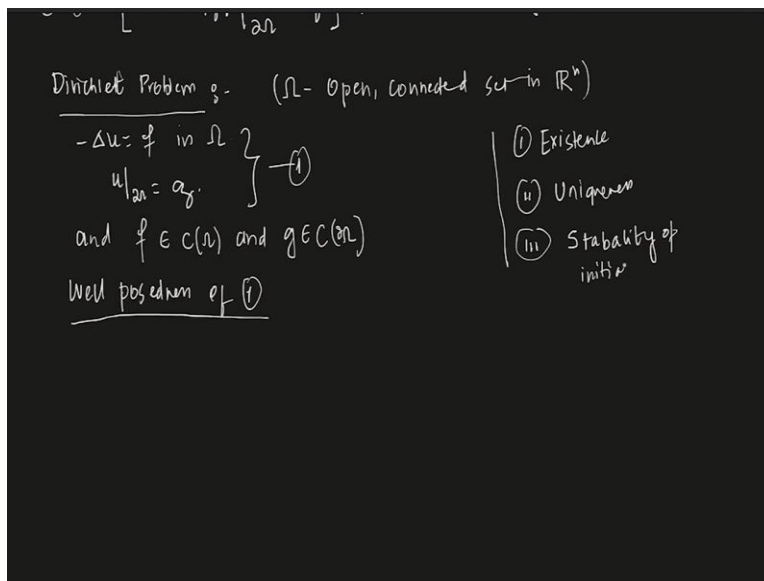 Dirichlet Problem :- (Ω - Open, Connected set in ℝⁿ)
-Δu = f in Ω
u|∂Ω = g.
} — ①
and f ∈ C(Ω) and g ∈ C(∂Ω)
Well posedness of ①
(i) Existence
(ii) Uniqueness
(iii) Stabality of
initia